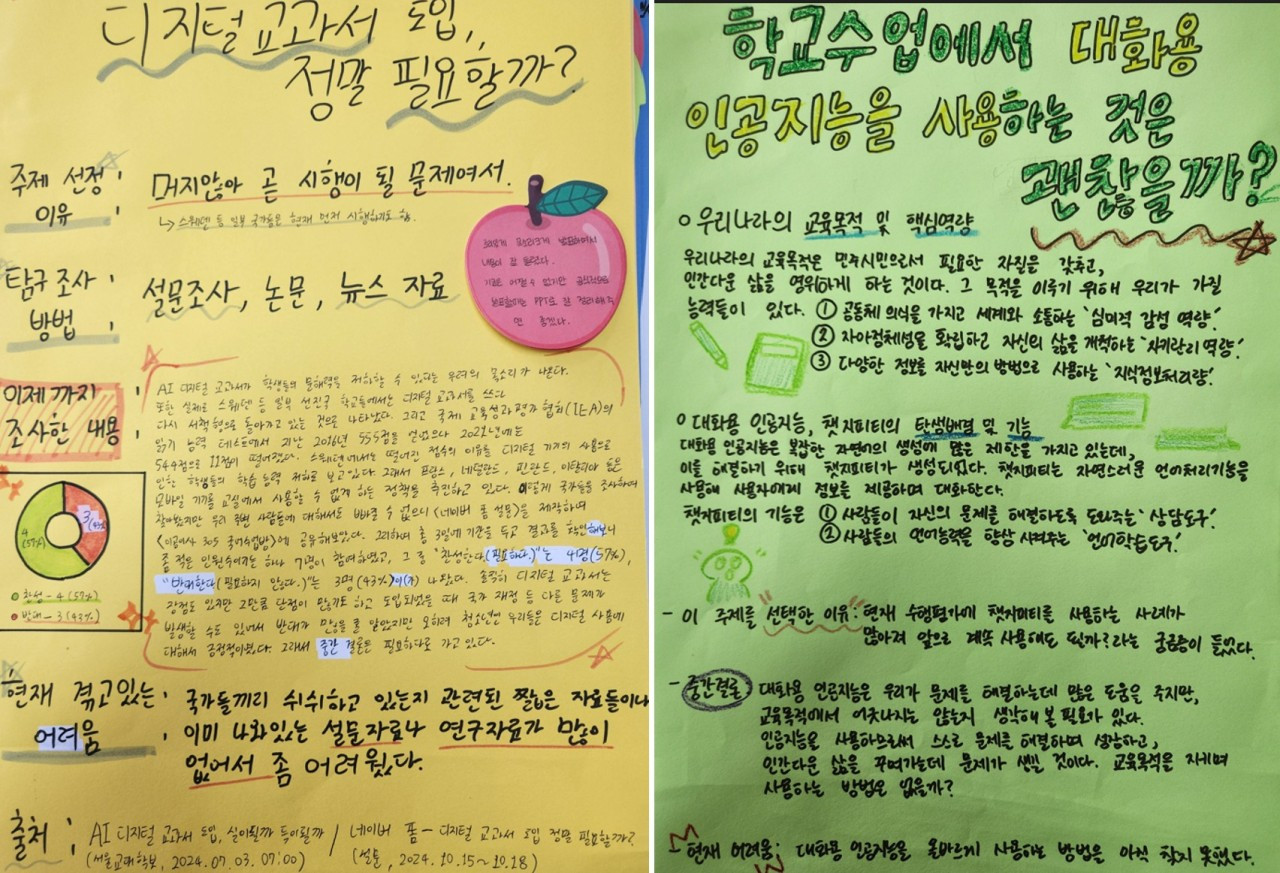 디지털 교과서 도입,
정말 필요할까?
주제 선정 :
이유 :
머지않아 곧 시행이 될 문제여서.
↳ 스웨덴 등 일부 국가들은 현재 먼저 시행하기도 함.
탐구 조사 :
방법 :
설문조사, 논문, 뉴스 자료
내용이 잘
PPT로
좋겠다.
이제까지
조사한 내용
AI 디지털 교과서가 학생들의 문해력을 저하할 수 있다는 우려의 목소리가 나온다.
또한 실제로 스웨덴 등 일부 선진국 학교들에서는 디지털 교과서를 쓰다
다시 서책형으로 돌아가고 있는 것으로 나타났다. 그리고 국제 교육성과평가 협회(IEA)의
읽기 능력 테스트에서 지난 2016년 555점을 얻었으나 2021년에는
544점으로 11점이 떨어졌다. 스웨덴에서는 떨어진 점수의 이유를 디지털 기기의 사용으로
인한 학생들의 학습 능력 저하로 보고있다. 그래서 프랑스, 네덜란드, 핀란드, 이탈리아 등은
모바일 기기를 교실에서 사용할 수 없게 하는 정책을 추진하고 있다. 이렇게 국가들을 조사하며
찾아봤지만 우리 주변 사람들에 대해서도 빠질 수 없으니 (네이버 폼 설문)을 제작하여
305 국어수업방>에 공유해보았다. 그리하여 총 3일에 기준을 두고 결과를 확인해보니
좀 적은 인원수이기는 하나 7명이 참여하였고, 그 중 "찬성한다(필요하다.)"는 4명(57%)
"반대한다(필요하지 않다.)"는 3명(43%)이(가) 나왔다. 솔직히 디지털 교과서는
장점도 있지만 그만큼 단점이 많기도 하고 도입되었을 때 국가 재정 등 다른 문제가
발생할 수도 있어서 반대가 많을 줄 알았지만 오히려 청소년인 우리들은 디지털 사용에
대해서 긍정적이었다. 그래서 중간 결론은 필요하다로 가고 있다.
4
(57%)
3
(43%)
찬성 - 4 (57%)
반대 - 3 (43%)
현재 겪고있는 :
어려움 :
국가들끼리 쉬쉬하고 있는지 관련된 짧은 자료들이나
이미 나와있는 설문자료나 연구자료가 많이
없어서 좀 어려웠다.
출처 :
AI 디지털 교과서 도입, 실이될까 득이될까 /
(서울교대학보, 2024.07.03. 07:00)
네이버 폼 - 디지털 교과서 도입 정말 필요할까?
(설문, 2024.10.15~10.18)
학교수업에서 대화용
인공지능을 사용하는 것은
괜찮을까?
o 우리나라의 교육목적 및 핵심역량
우리나라의 교육목적은 민주시민으로서 필요한 자질을 갖추고,
인간다운 삶을 영위하게 하는 것이다. 그 목적을 이루기 위해 우리가 가질
능력들이 있다. ① 공동체 의식을 가지고 세계와 소통하는 '심미적 감성 역량'.
② 자아정체성을 확립하고 자신의 삶을 개척하는 '자기관리 역량'.
③ 다양한 정보를 자신만의 방법으로 사용하는 '지식정보처리량'.
o 대화용 인공지능, 챗지피티의 탄생배경 및 기능
대화용 인공지능은 복잡한 자연어의 생성에 많은 제한을 가지고 있는데,
이를 해결하기 위해 챗지피티가 생성되었다. 챗지피티는 자연스러운 언어처리기능을
사용해 사용자에게 정보를 제공하며 대화한다.
챗지피티의 기능은 ① 사람들이 자신의 문제를 해결하도록 도와주는 '상담도구'.
② 사람들의 언어능력을 향상 시켜주는 '언어학습도구'.
- 이 주제를 "선택한 이유: 현재 수행평가에 챗지피티를 사용하는 사례가
많아져 앞으로 계속 사용해도 될까?라는 궁금증이 들었다.
- 중간결론 대화용 인공지능은 우리가 문제를 해결하는데 많은 도움을 주지만,
교육목적에서 어긋나지는 않는지 생각해 볼 필요가 있다.
인공지능을 사용함으로써 스스로 문제를 해결하며 성장하고,
인간다운 삶을 꾸며가는데 문제가 생길 것이다. 교육목적을 지키며
사용하는 방법은 없을까?
- 현재 어려움: 대화용 인공지능을 올바르게 사용하는 방법을 아직 찾지 못했다.